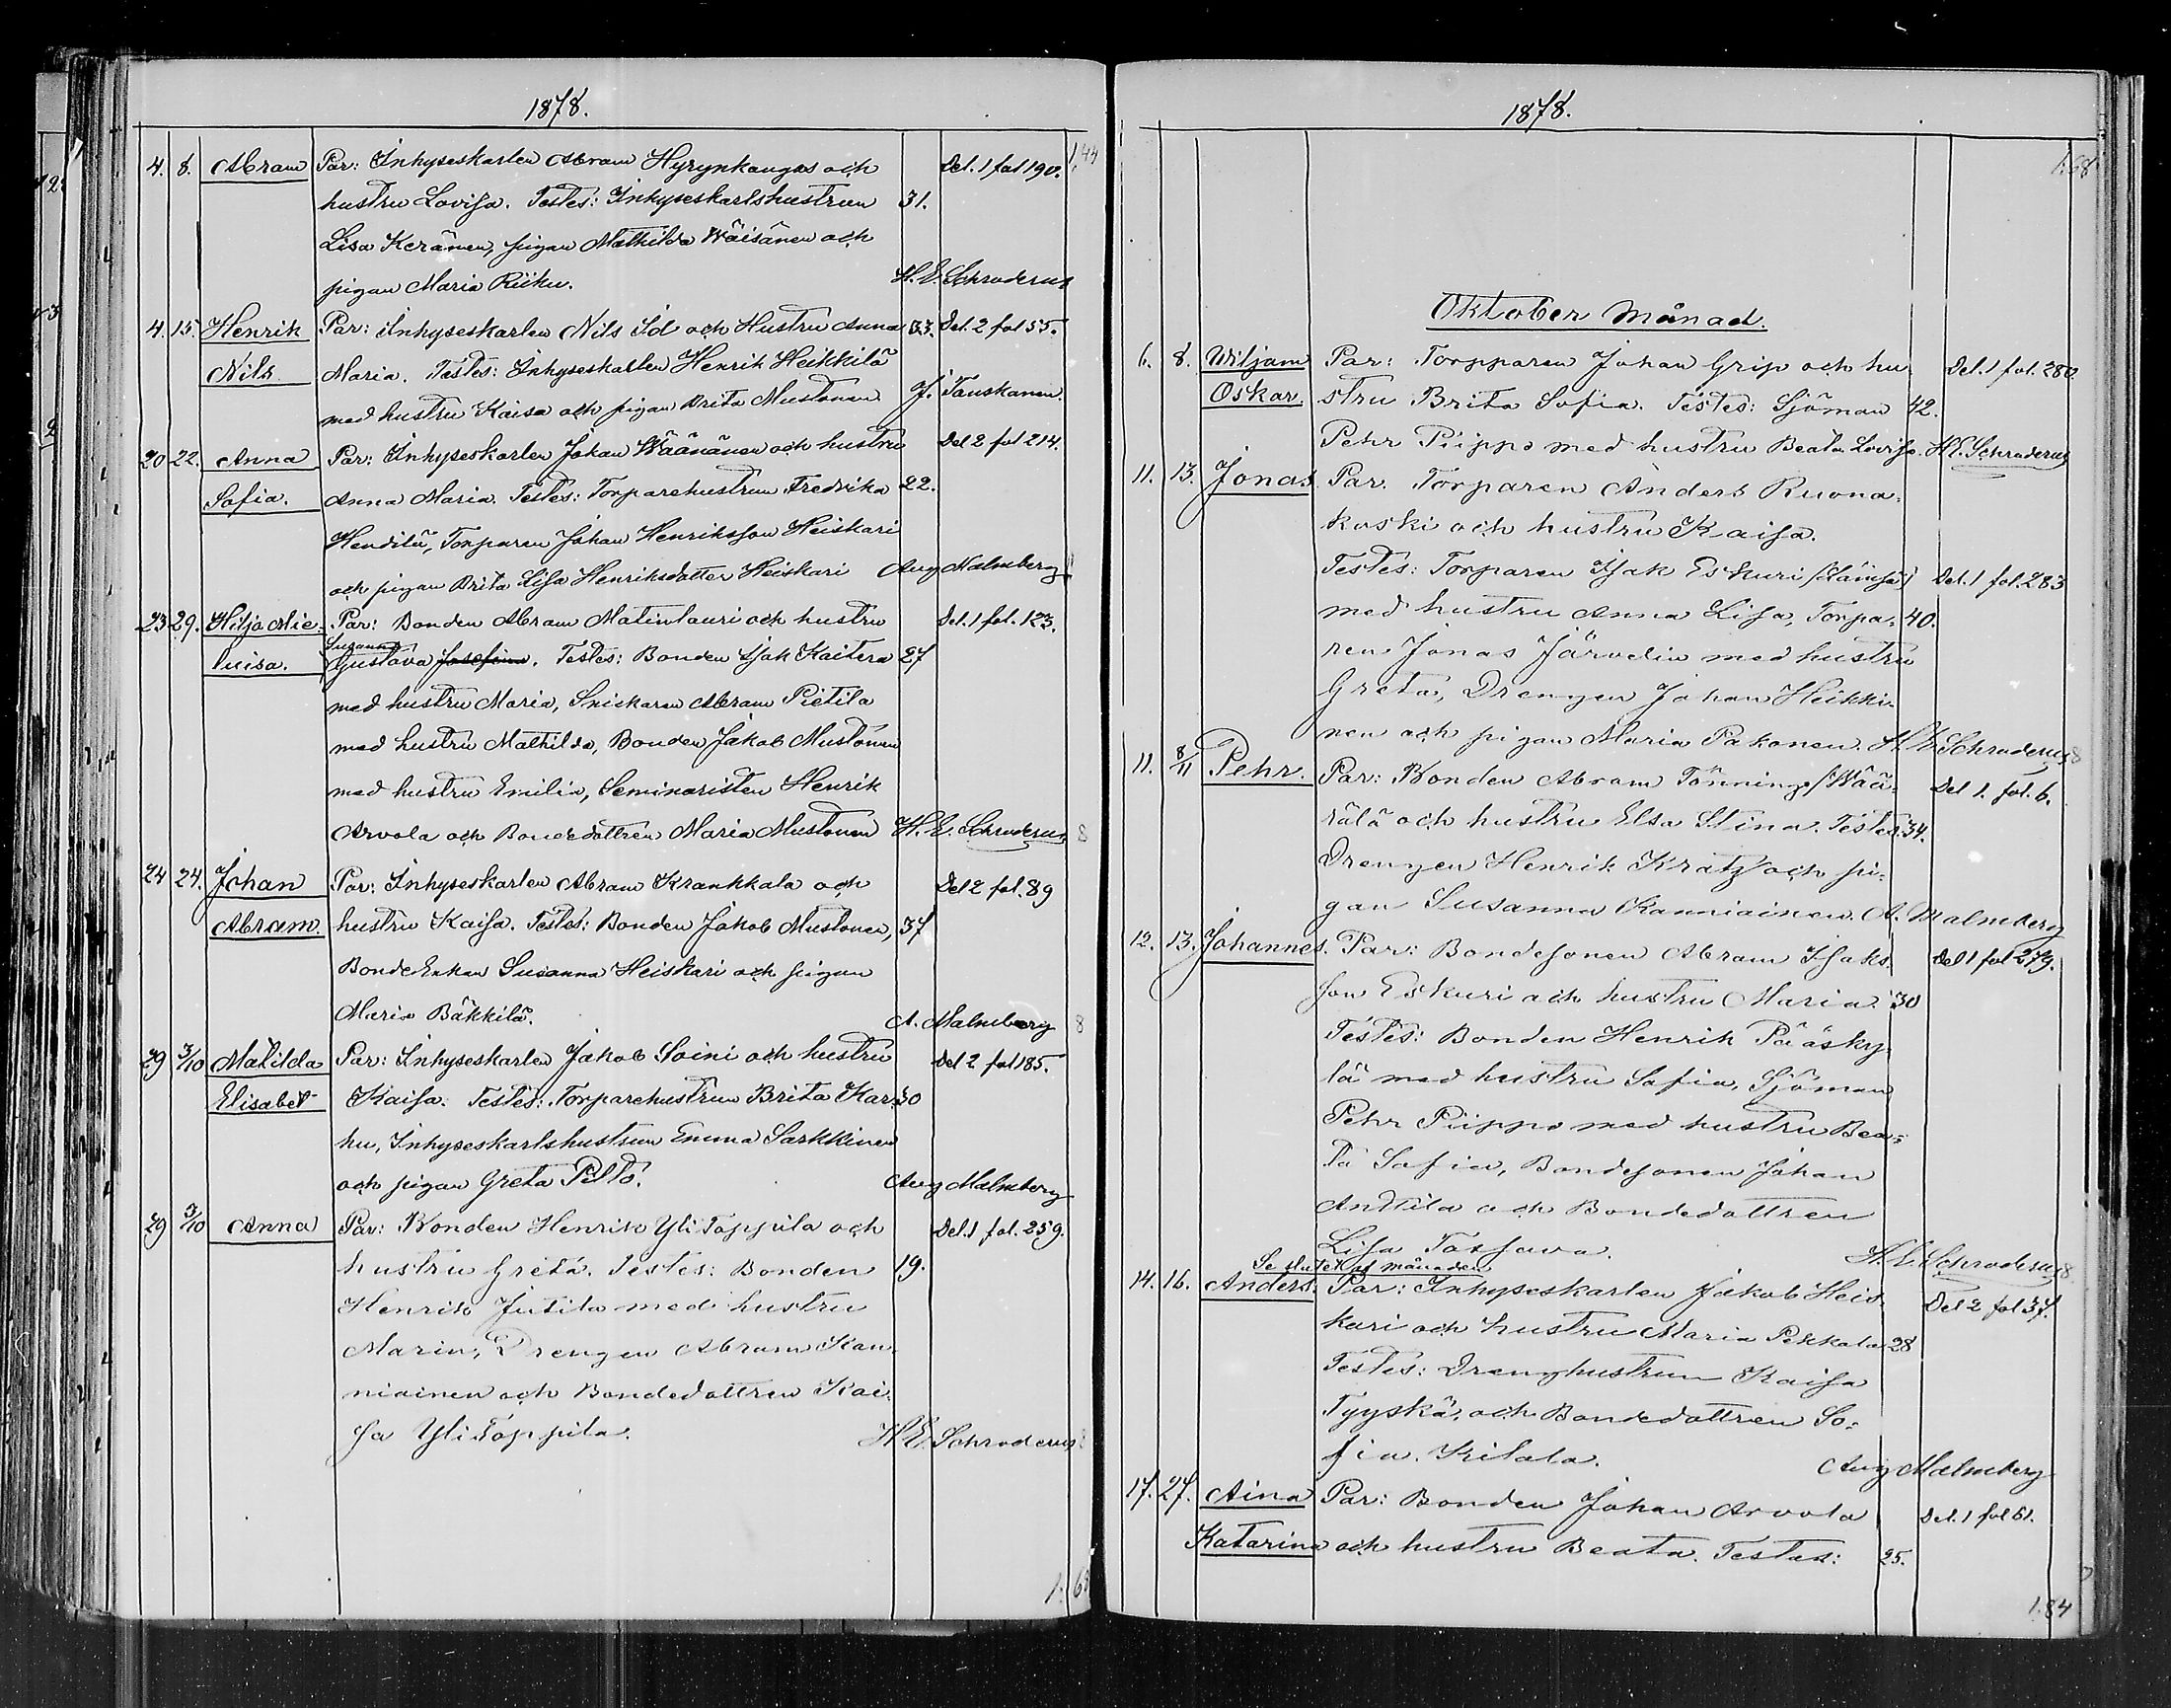 1878.
4. 8. Abram Par: Inhyseskarlen Abram Hyrynkangas och Del. 1 fol 190. 1,44
hustru Lovisa. Testes: Inhyseskarlshustrun 31.
Lisa Keränen, pigan Mathilda Wäisänen och
pigan Maria Riiku. H. E. Schroderus
4. 15. Henrik Par: Inhyseskarlen Nils Id och Hustru Anna 33. Del. 2 fol 55.
Nils Maria. Testes: Inhyseskarlen Henrik Heikkilä
med hustru Kaisa och pigan Brita Mustonen J. Tauskanen.
20 22. Anna Par: Inhyseskarlen Johan Wäänänen och hustru Del 2 fol 214.
Sofia. Anna Maria. Testes: Torparehustrun Fredrika 22.
Hendilä, Torparen Johan Henriksson Heiskari
och pigan Brita Lisa Henriksdotter Heiskari Aug Malmberg
23 29. Hilja Mie- Par: Bonden Abram Matinlauri och hustru Del. 1 fol. 123.
Susanna
luisa. Gustava Josefina. Testes: Bonden Isak Kaitera 27
med hustru Maria, Snickaren Abram Pietila
med hustru Mathilda, Bonden Jakob Mustonen
med hustru Emilia, Seminaristen Henrik
Arvola och Bondedottren Maria Mustonen H. E. Schroderus 8
24 24. Johan Par: Inhyseskarlen Abram Krankkala och Del 2 fol. 89
Abram. hustru Kaisa. Testes: Bonden Jakob Mustonen, 37
Bonde Enkan Susanna Heiskari och pigan
Maria Bäkkilä. A. Malmberg 8
29 3/10 Matilda Par: Inhyseskarlen Jakob Soini och hustru Del 2 fol 185.
Elisabet Kaisa. Testes: Torparehustrun Brita Kar- 30
hu, Inhyseskarlshustrun Emma Sarkkinen
och pigan Greta Pelto. Aug Malmberg
29 3/10 Anna Par: Bonden Henrik Yli Toppila och Del. 1 fol. 259.
hustru Greta. Testes: Bonden 19.
Henrik Jutila med hustru
Maria, Drengen Abram Kan-
niainen och Bondedottren Kai-
sa Yli Toppila. H E. Schroderus 8
1. 68
1878.
1.68
Oktober Månad.
6. 8. Wiljam Par: Torpparen Johan Grip och hu- Del. 1 fol. 280.
Oskar. stru Brita Sofia. Testes: Sjöman 42.
Pehr Piippo med hustru Beata Lovisa. H E. Schroderus
11. 13. Jonas. Par. Torparen Anders Ruona-
koski och hustru Kaisa.
Testes: Torparen Isak Eskuri Del. 1 fol. 283
med hustru Anna Lisa, Torpa- 40.
ren Jonas Järvelin med hustru
Greta, Drengen Johan Heikki-
nen och pigan Maria Pakonen. H. E. Schroderus 8
11. 8/11 Pehr. Par: Bonden Abram Tönning /Wää- Del 1. fol. 6.
rälä och hustru Elsa Stina. Testes: 34.
Drengen Henrik Kratz och pi-
gan Susanna Kanniainen. A. Malmberg
12. 13. Johannes. Par: Bondesonen Abram Isaks- Del 1 fol 279.
son Eskuri och hustru Maria. 30
Testes: Bonden Henrik Pääsky-
lä med hustru Sofia, Sjöman
Pehr Piippo med hustru Bea-
ta Sofia, Bondesonen Johan
Anttila och Bondedottren
Lisa Tossava. H. E. Schroderus 8.
Se slutet af månaden.
14. 16. Anders. Par: Inhyseskarlen Jakob Heis- Del 2 fol 37.
kari och hustru Maria Pekkala 28
Testes: Drenghustrun Kaisa
Tyyskä, och Bondedottren So-
fia Kilala. Aug Malmberg
17. 27. Aina Par: Bonden Johan Arvola Del. 1 fol 61.
Katarina och hustru Beata. Testes: 25.
1.84